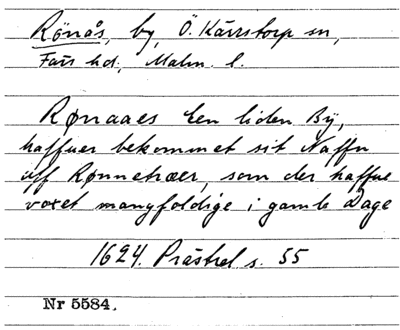 Rönås, by, Ö. Kärrstorp sn,
Färs hd., Malm. l.
Rønaaes Een liden By,
haffuer bekommet sit Naffn
aff Rønnetræer, som der haffue
voxet mangfoldige i gamle Dage
1624. Prästrel s. 55
Nr 5584.